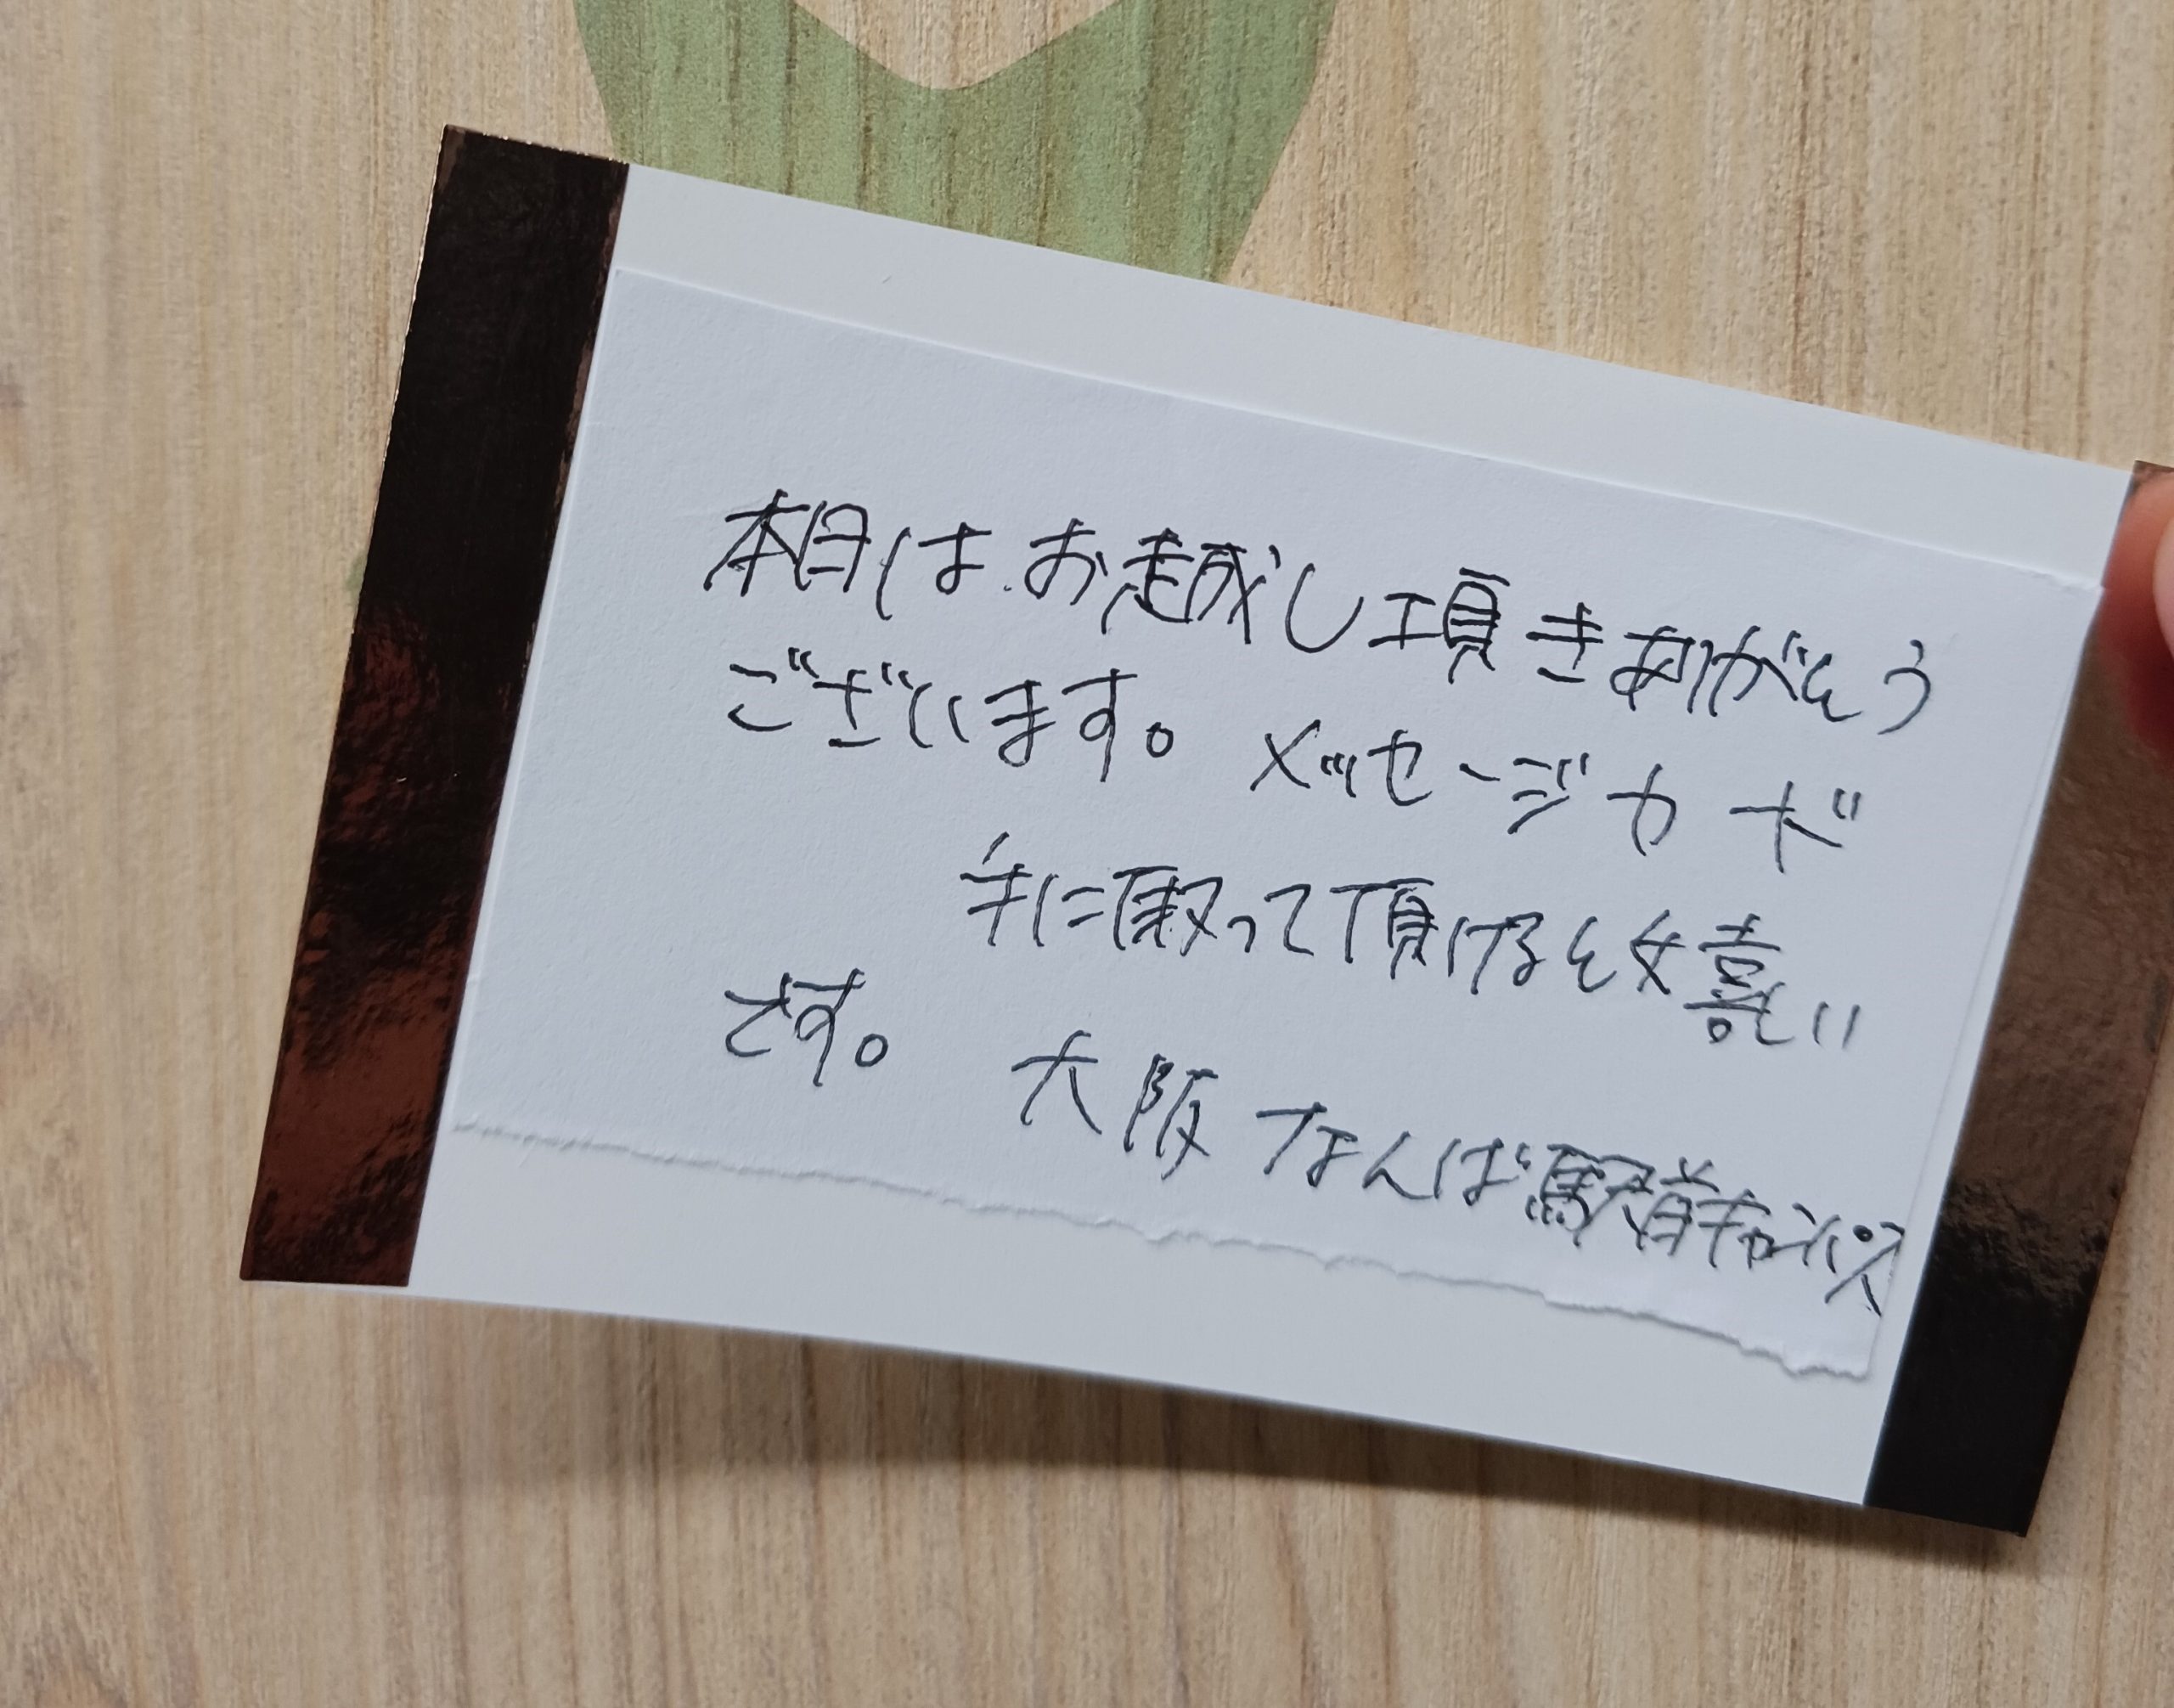 本日は.お越し項きありがとう
ございます。メッセージカード
手に取って頂けると嬉しい
です。 大阪なんば駅前キャンパス